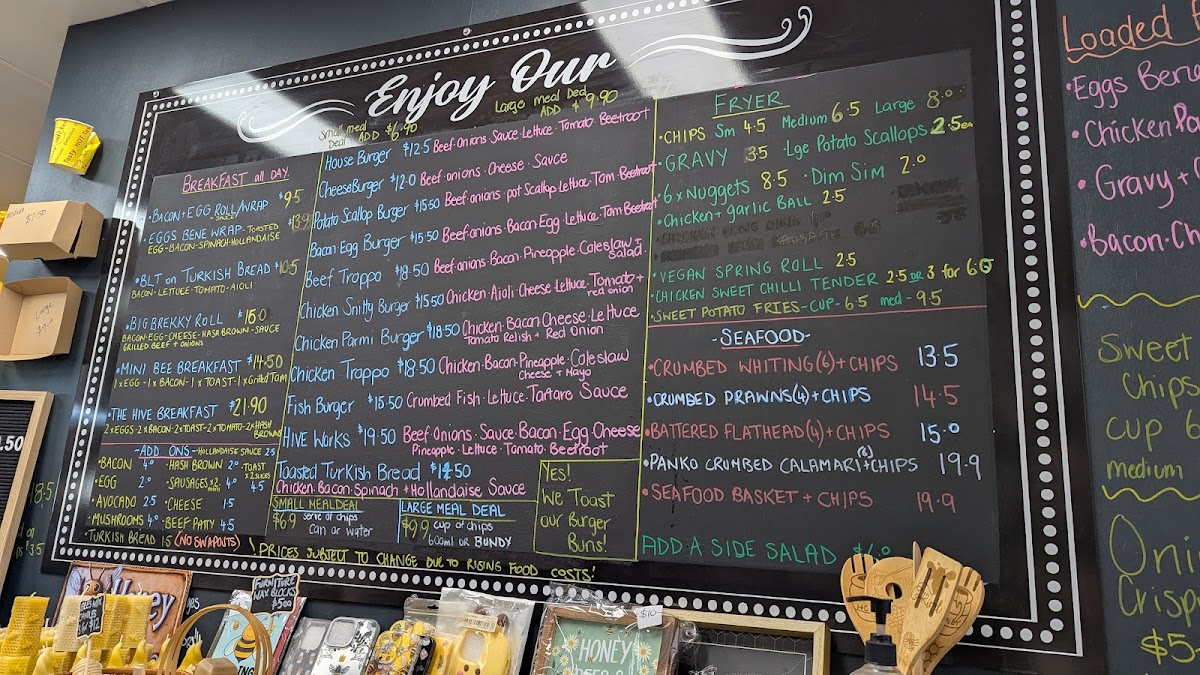 Enjoy Our
Small meal Deal ADD $6.90
Large meal Deal ADD $9.90
BREAKFAST all DAY
•BACON+EGG ROLL/WRAP $9.5
SAUCE
EGGS BENE WRAP. TOASTED $13.9
EGG-BACON-SPINACH-HOLLANDAISE
•BLT on TURKISH BREAD $10.5
BACON-LETTUCE-TOMATO-AIOLI
•BIG BREKKY ROLL $16.0
BACON-EGG-CHEESE-HASHBROWN-SAUCE
GRILLED BEEF + ONIONS
•MINI BEE BREAKFAST $14.50
1 x EGG - 1 x BACON - 1 x TOAST - 1 x Grilled Tom
•THE HIVE BREAKFAST $21.90
2 x EGGS - 2 x BACON - 2 x TOAST - 2 x TOMATO - 2 x HASH BROWN
-ADD ONS- HOLLANDAISE SAUCE 2.5
•BACON 4.0 •HASH BROWN 2.0 •TOAST
2 SLICES
•EGG 2.0 •SAUSAGES x2 mini 4.0 4.5
•AVOCADO 2.5 •CHEESE 1.5
•MUSHROOMS 4.0 •BEEF PATTY 4.5
•TURKISH BREAD 1.5 (NO SWAPOUTS)
House Burger $12.5 Beef.onions.Sauce.Lettuce.Tomato.Beetroot
CheeseBurger $12.0 Beef.onions.Cheese.Sauce
Potato Scallop Burger $15.50 Beef.onions.pot Scallop.Lettuce.Tom.Beetroot
Bacon Egg Burger $15.50 Beef.onions.Bacon.Egg.Lettuce.Tom.Beetroot
Beef Trappo $18.50 Beef.onions.Bacon.Pineapple.Caleslaw salad.
Chicken Snitty Burger $15.50 Chicken.Aioli.Cheese.Lettuce.Tomato + red onion
Chicken Parmi Burger $18.50 Chicken.Bacon.Cheese.Lettuce
Tomato Relish + Red Onion
Chicken Trappo $18.50 Chicken.Bacon.Pineapple.Caleslaw
Cheese + Mayo
Fish Burger $15.50 Crumbed Fish.Lettuce.Tartare Sauce
Hive Works $19.50 Beef.Onions.Sauce.Bacon.Egg.Cheese
Pineapple.Lettuce.Tomato.Beetroot
Toasted Turkish Bread $14.50
Chicken.Bacon.Spinach + Hollandaise Sauce
SMALL MEAL DEAL
$6.9 serve of chips
can or water
LARGE MEAL DEAL
$9.9 cup of chips
600ml OR BUNDY
YES!
We Toast
our Burger
Buns!
! PRICES SUBJECT TO CHANGE DUE TO RISING FOOD COSTS!
FRYER
•CHIPS Sm 4.5 Medium 6.5 Large 8.0
•GRAVY 3.5 •Lge Potato Scallops 2.5 ea
•6 x Nuggets 8.5 •Dim Sim 2.0
•Chicken + garlic BALL 2.5
•VEGAN SPRING ROLL 2.5
•CHICKEN SWEET CHILLI TENDER 2.5 OR 3 for 6.0
•SWEET POTATO FRIES-CUP-6.5 med-9.5
-SEAFOOD-
•CRUMBED WHITING(6)+CHIPS 13.5
•CRUMBED PRAWNS(4)+CHIPS 14.5
•BATTERED FLATHEAD(4)+CHIPS 15.0
•PANKO CRUMBED CALAMARI(8)+CHIPS 19.9
•SEAFOOD BASKET + CHIPS 19.9
ADD A SIDE SALAD
Loaded
•Eggs Bene
•Chicken Pa
•Gravy +
•Bacon.Ch
Sweet
Chips
cup 6
medium
Oni
Crisp
$5-
.50
18.5
FURNITURE
WAX BLOCKS
$5ea
$10
HONEY